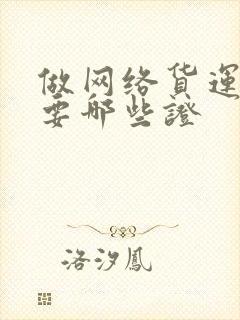 做网络货運
要哪些證
洛汐鳳